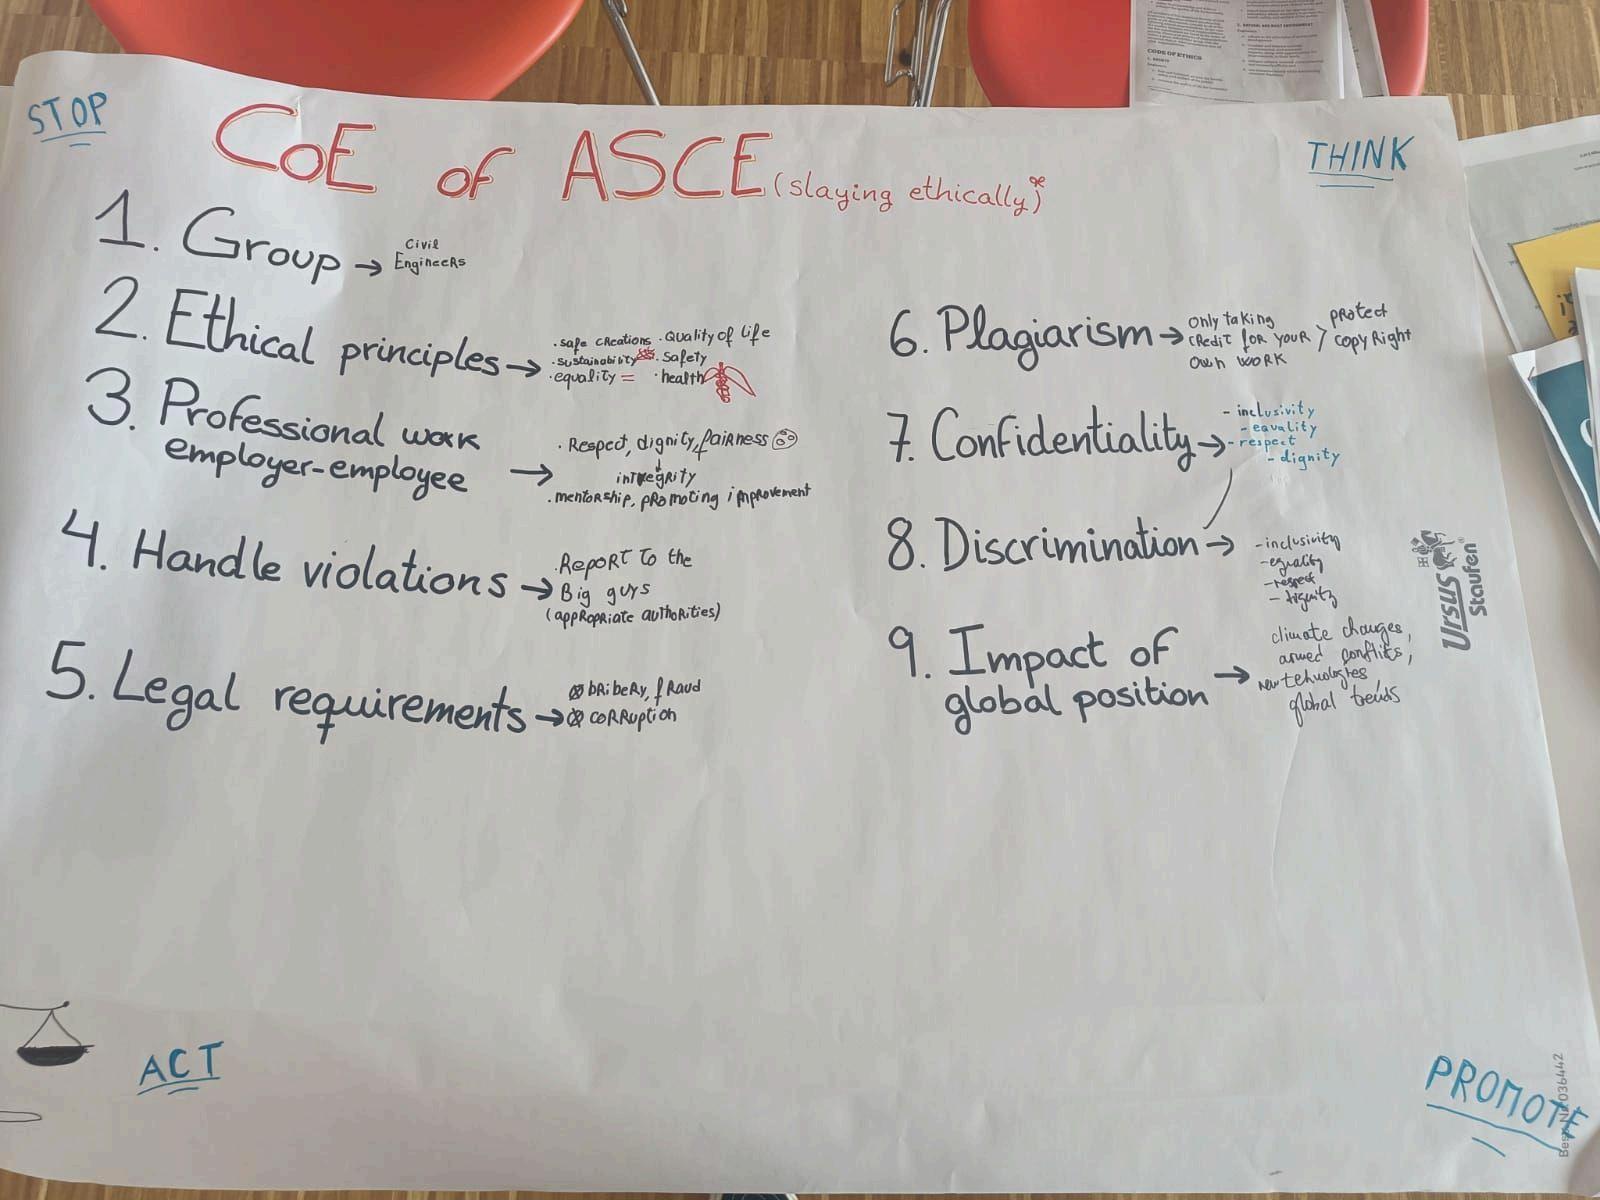 STOP
CoE of ASCE (slaying ethically)
THINK
1. Group →
Civil
Engineers
2. Ethical principles →
. safe creations . Quality of life
. sustainability . Safety
. equality = . health
3. Professional work
employer-employee →
. Respect, dignity, fairness
integrity
. mentorship, promoting improvement
4. Handle violations →
. Report to the
Big guys
(appropriate authorities)
5. Legal requirements →
bribery, fraud
corruption
6. Plagiarism →
Only taking
credit for your > protect
own work
copyright
7. Confidentiality →
- inclusivity
- equality
- respect
- dignity
8. Discrimination →
- inclusivity
- equality
- respect
- dignity
9. Impact of
global position →
climate changes,
armed conflits,
new tehnologies,
global trends
Ursus®
Staufen
ACT
PROMOTE
036442
CODE OF ETHICS
1. SOCIETY